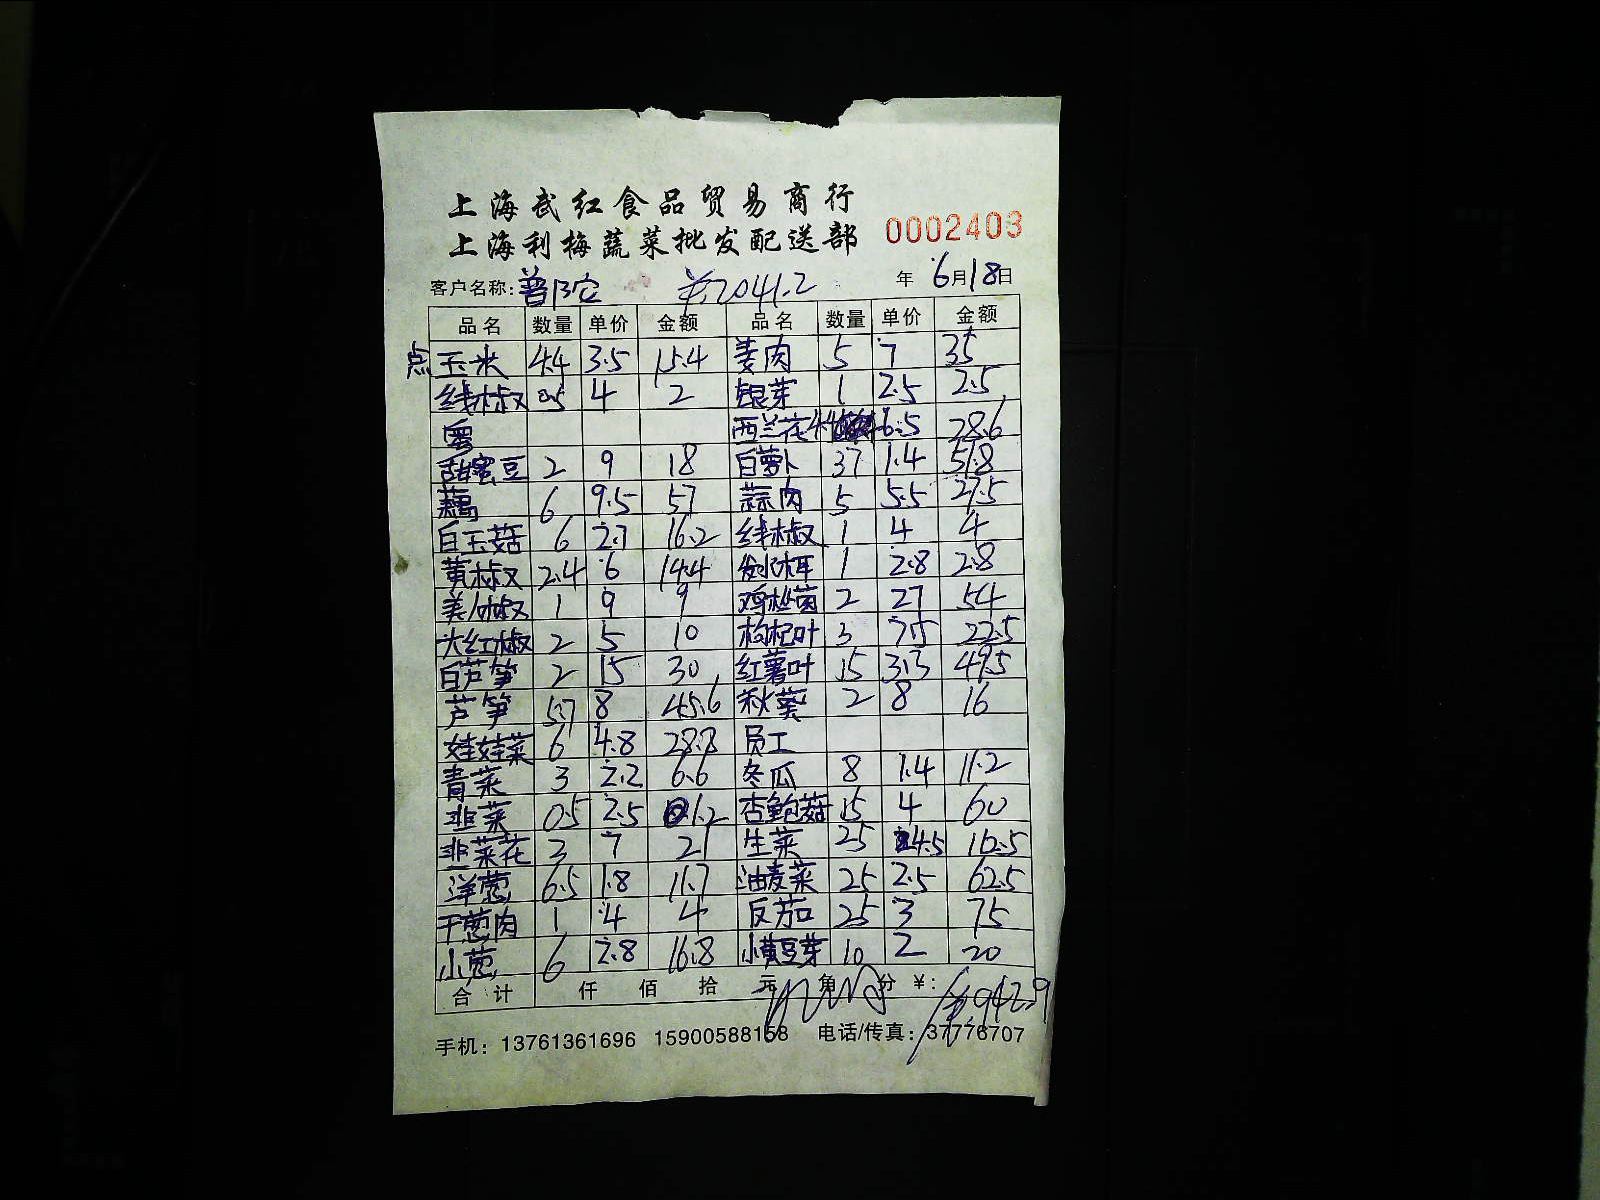 上海武红食品贸易商行
上海利梅蔬菜批发配送部 0002403
客户名称: 普陀 ¥:2041.2 年 6月18日
品名 数量 单价 金额 品名 数量 单价 金额
点 玉米 4.4 3.5 15.4 姜肉 5 7 35
线椒 0.5 4 2 银芽 1 2.5 2.5
粤 西兰花 4.4 6.5 28.6
甜蜜豆 2 9 18 白萝卜 37 1.4 51.8
藕 6 9.5 57 蒜肉 5 5.5 27.5
白玉菇 6 2.7 16.2 线椒 1 4 4
黄椒 2.4 6 14.4 1 2.8 2.8
美人椒 1 9 9 鸡枞菌 2 27 54
大红椒 2 5 10 枸杞叶 3 7.5 22.5
白芦笋 2 15 30 红薯叶 15 3.3 49.5
芦笋 5.7 8 45.6 秋葵 2 8 16
娃娃菜 6 4.8 28.8 员工
青菜 3 2.2 6.6 冬瓜 8 1.4 11.2
韭菜 0.5 2.5 1.2 杏鲍菇 15 4 60
韭菜花 3 7 21 生菜 25 4.5 112.5
洋葱 6.5 1.8 11.7 油麦菜 25 2.5 62.5
干葱肉 1 4 4 反茄 25 3 75
小葱 6 2.8 16.8 小黄豆芽 10 2 20
合计 仟 佰 拾 元 角 分 ¥: 942.9
手机: 13761361696 15900588158 电话/传真: 37776707